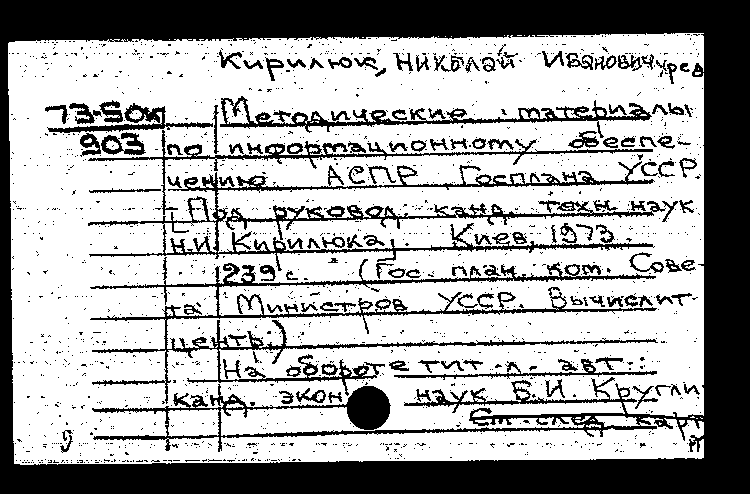 Кирилюк, Николай Иванович, ред
73-50к Методические материалы
903 по информационному обеспе-
чению АСПР Госплана УССР.
[Под руковод. канд. техн. наук
Н.И. Кирилюка]. Киев, 1973.
239 с. (Гос. план. ком. Сове-
та Министров УССР. Вычислит.
центр.)
На обороте тит. л. авт.:
канд. экон. наук В.И. Кругли-
См. след. карт
9